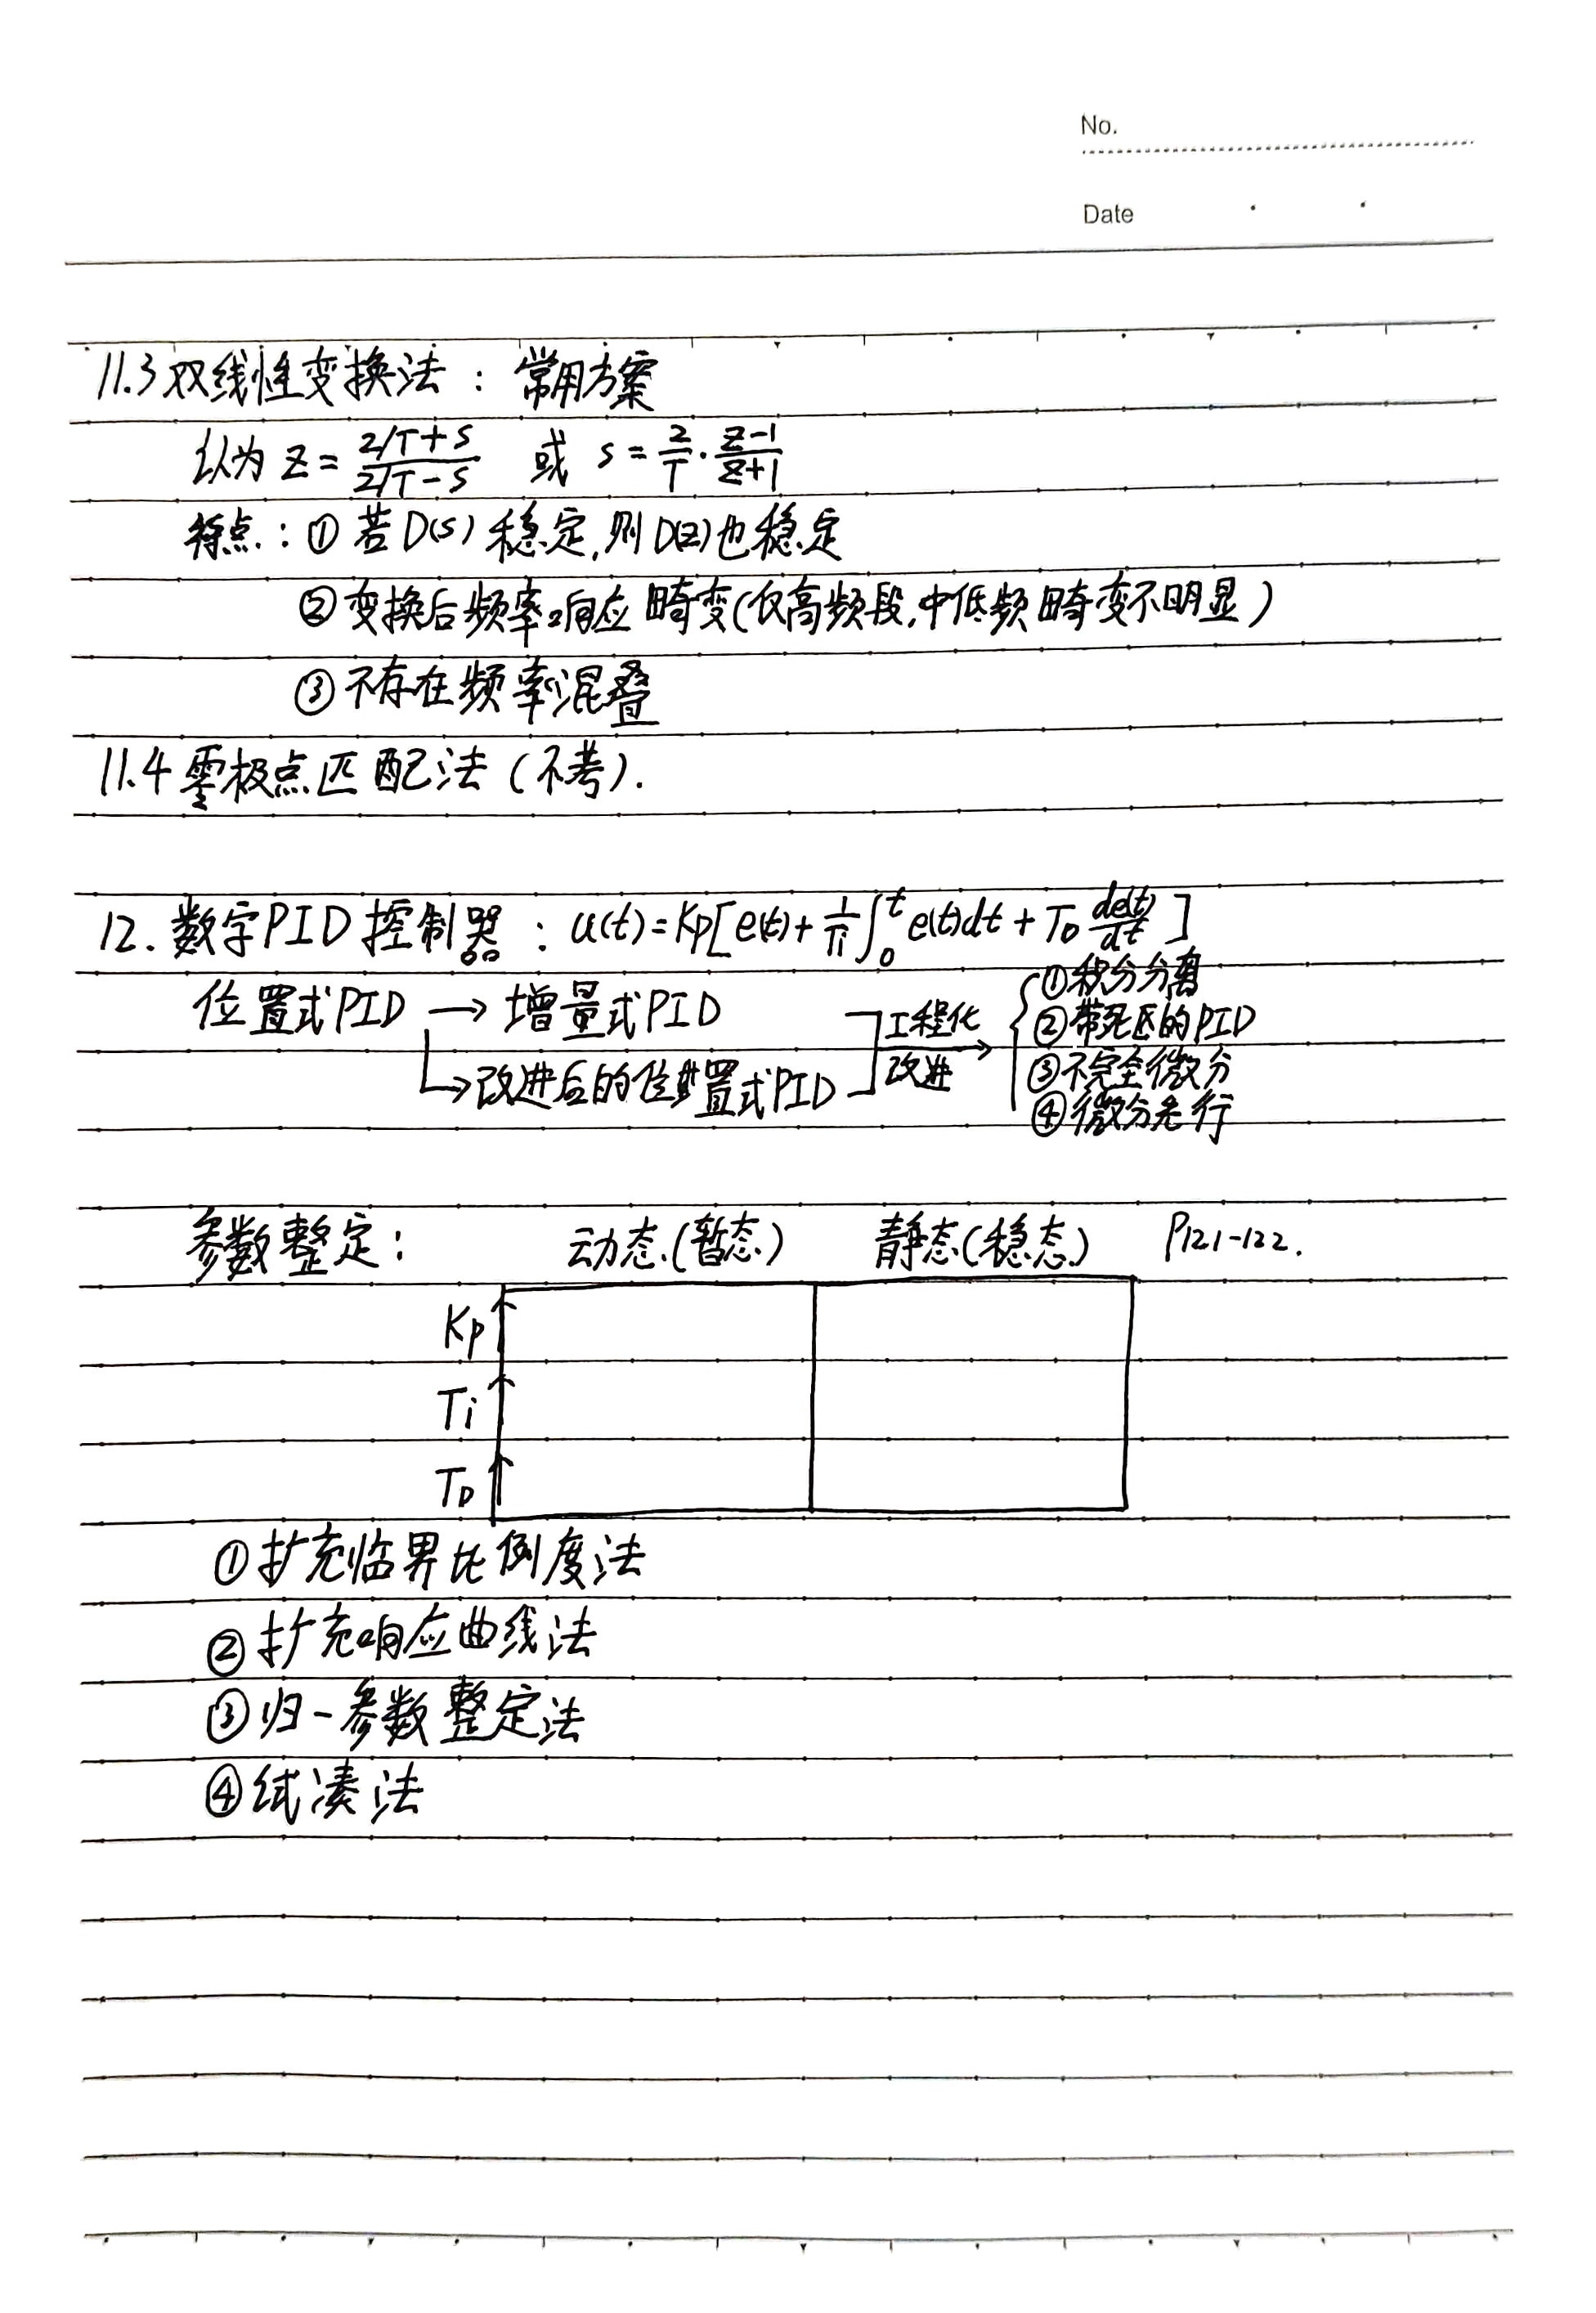 No.
Date
11.3 双线性变换法：常用方案
认为 z = (2/T+s)/(2/T-s) 或 s = 2/T · (z-1)/(z+1)
特点：① 若D(s)稳定,则D(z)也稳定
② 变换后频率响应畸变(仅高频段,中低频畸变不明显)
③ 不存在频率混叠
11.4 零极点匹配法(不考).
12. 数字PID控制器：u(t)=Kp[e(t)+1/Ti ∫₀ᵗ e(t)dt + T_D de(t)/dt]
位置式PID → 增量式PID
↳ 改进后的位置式PID
工程化改进 →
① 积分分离
② 带死区的PID
③ 不完全微分
④ 微分先行
参数整定： 动态(暂态) 静态(稳态) P121-122.
Kp ↑
Ti ↑
T_D ↑
① 扩充临界比例度法
② 扩充响应曲线法
③ 归一参数整定法
④ 试凑法